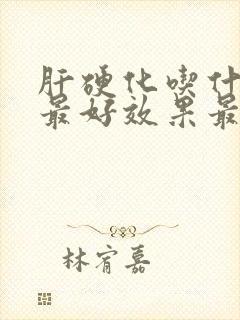 肝硬化喫什
最好效果最
林宥嘉